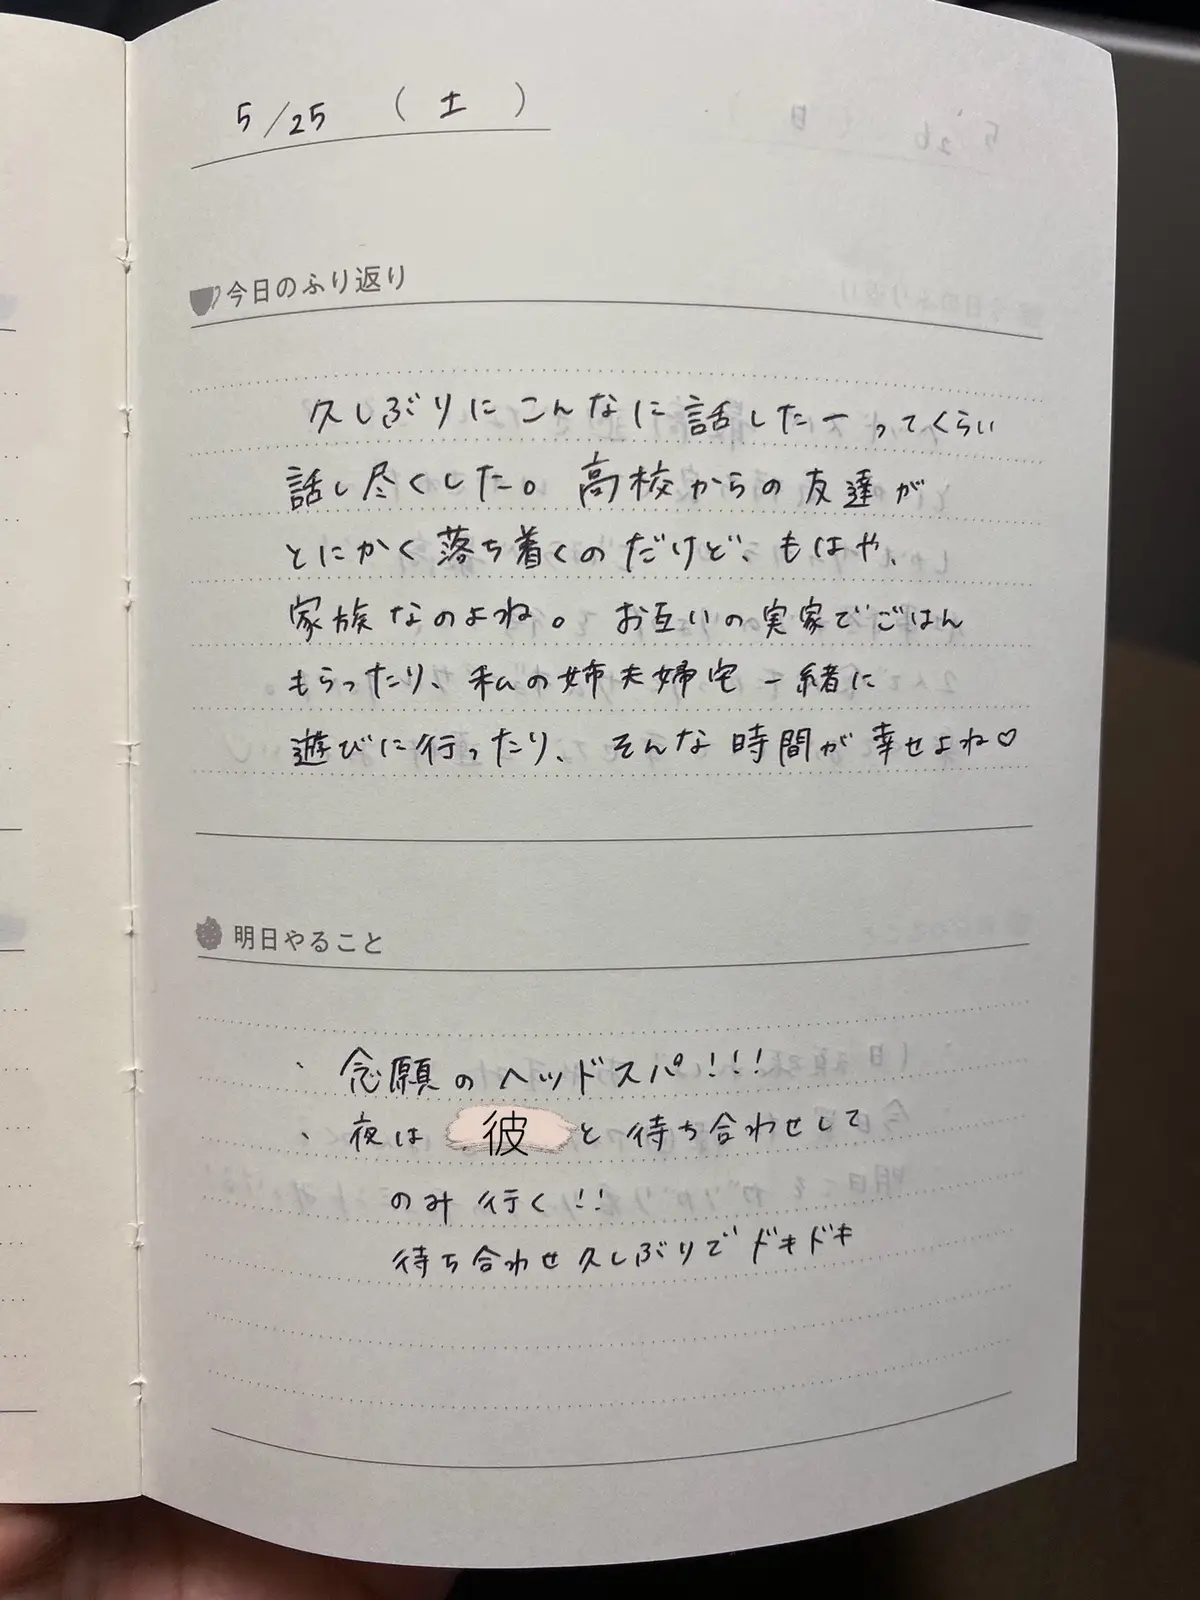 5/25 (土)
今日のふり返り
久しぶりにこんなに話したーってくらい
話し尽くした。高校からの友達が
とにかく落ち着くのだけど、もはや、
家族なのよね。お互いの実家でごはん
もらったり、私の姉夫婦宅一緒に
遊びに行ったり、そんな時間が幸せよね♡
明日やること
・念願のヘッドスパ!!!
・夜は 彼 と待ち合わせして
のみ行く!!
待ち合わせ久しぶりでドキドキ